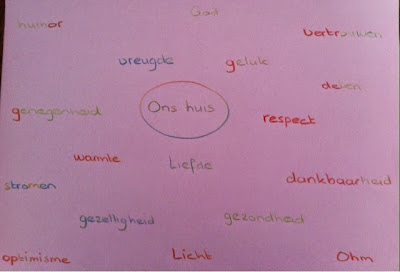 God
humor
vertrouwen
vreugde
geluk
delen
genegenheid
Ons huis
respect
warmte
Liefde
stromen
dankbaarheid
gezelligheid
gezondheid
optimisme
Licht
Ohm